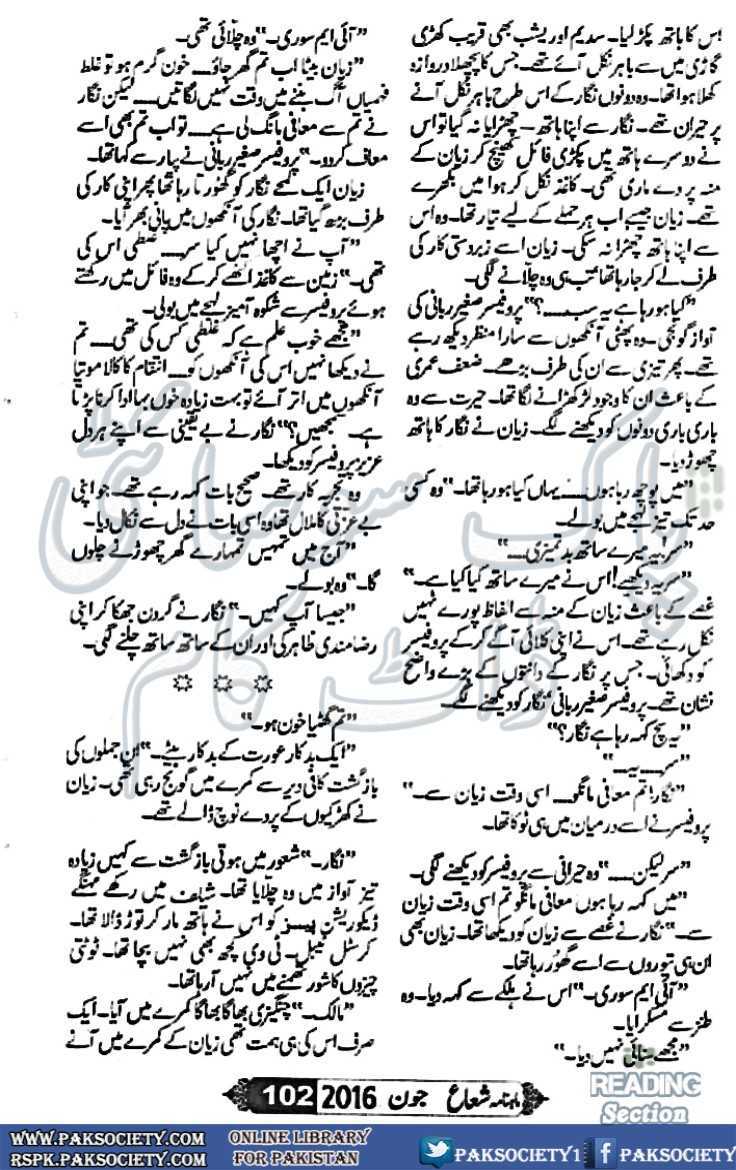 اس کا ہاتھ پکڑ لیا۔ سدیم اور یشب بھی قریب کھڑی
گاڑی میں سے باہر نکل آئے تھے۔ جس کا پچھلا دروازہ
کھلا ہوا تھا۔ وہ دونوں نگار کے اس طرح باہر نکل آنے
پر حیران تھے۔ نگار سے اپنا ہاتھ – چھڑایا نہ گیا تو اس
نے دوسرے ہاتھ میں پکڑی فائل کھینچ کر زیان کے
منہ پر دے ماری تھی۔ کاغذ نکل کر ہوا میں بکھرے
تھے۔ زیان جیسے اب ہر حملے کے لیے تیار تھا۔ وہ اس
سے اپنا ہاتھ چھڑا نہ سکی۔ زیان اسے زبردستی کار کی
طرف لے کر جا رہا تھا تب ہی وہ چلانے لگی۔
”کیا ہو رہا ہے یہ سب....؟“ پروفیسر صغیر ربانی کی
آواز گونجی۔ وہ پھٹی آنکھوں سے سارا منظر دیکھ رہے
تھے۔ پھر تیزی سے ان کی طرف بڑھے۔ ضعف عمری
کے باعث ان کا وجود لڑکھڑانے لگا تھا۔ حیرت سے وہ
باری باری دونوں کو دیکھنے لگے۔ زیان نے نگار کا ہاتھ
چھوڑ دیا۔
”میں پوچھ رہا ہوں.... یہاں کیا ہو رہا تھا۔“ وہ کسی
حد تک تیز لہجے میں بولے۔
”سر یہ میرے ساتھ بد تمیزی....“
”سر یہ دیکھیے! اس نے میرے ساتھ کیا کیا ہے۔“
غصے کے باعث زیان کے منہ سے الفاظ پورے نہیں
نکل رہے تھے۔ اس نے اپنی کلائی آگے کر کے پروفیسر
کو دکھائی۔ جس پر نگار کے دانتوں کے بڑے واضح
نشان تھے۔ پروفیسر صغیر ربانی‘ نگار کو دیکھنے لگے۔
”یہ سچ کہہ رہا ہے نگار؟“
”سر.... یہ....“
”نگار! تم معافی مانگو.... اسی وقت زیان سے۔“
پروفیسر نے اسے درمیان میں ہی ٹوکا تھا۔
”سر لیکن....“ وہ حیرانی سے پروفیسر کو دیکھنے لگی۔
”میں کہہ رہا ہوں معافی مانگو تم اسی وقت زیان
سے۔“ نگار نے غصے سے زیان کو دیکھا تھا۔ زیان بھی
ان ہی تیوروں سے اسے گھور رہا تھا۔
”آئی ایم سوری۔“ اس نے ہلکے سے کہہ دیا۔ وہ
طنز سے مسکرایا۔
”مجھے سنائی نہیں دیا۔“
”آئی ایم سوری۔“ وہ چلّائی تھی۔
”زیان بیٹا اب تم گھر جاؤ.... خون گرم ہو تو غلط
فہمیاں آگ بننے میں وقت نہیں لگاتیں.... لیکن نگار
نے تم سے معافی مانگ لی ہے.... تو اب تم بھی اسے
معاف کر دو۔“ پروفیسر صغیر ربانی نے پیار سے کہا تھا۔
زیان ایک لمحے نگار کو گھورتا رہا تھا پھر اپنی کار کی
طرف بڑھ گیا تھا۔ نگار کی آنکھوں میں پانی بھر آیا۔
”آپ نے اچھا نہیں کیا سر.... غلطی اس کی
تھی۔“ زمین سے کاغذ اکٹھے کر کے وہ فائل میں رکھتے
ہوئے پروفیسر سے شکوہ آمیز لہجے میں بولی۔
”مجھے خوب علم ہے کہ غلطی کس کی تھی.... تم
نے دیکھا نہیں اس کی آنکھوں کو.... انتقام کا کالا موتیا
آنکھوں میں اتر آئے تو بہت زیادہ خوں بہا ادا کرنا پڑتا
ہے.... سمجھیں؟“ نگار نے بے یقینی سے اپنے ہر دل
عزیز پروفیسر کو دیکھا۔
وہ تجربہ کار تھے۔ صحیح بات کہہ رہے تھے۔ جو اپنی
بے عزتی کا ملال تھا وہ اسی بات نے دل سے نکال دیا۔
”آج میں تمہیں تمہارے گھر چھوڑنے چلوں
گا۔“ وہ بولے۔
”جیسا آپ کہیں۔“ نگار نے گردن جھکا کر اپنی
رضامندی ظاہر کی اور ان کے ساتھ ساتھ چلنے لگی۔
”تم گھٹیا خون ہو۔“
”ایک بد کار عورت کے بد کار بیٹے۔“ ان جملوں کی
بازگشت کافی دیر سے کمرے میں گونج رہی تھی۔ زیان
نے کھڑکیوں کے پردے نوچ ڈالے تھے۔
”نگار۔“ شعور میں ہوتی بازگشت سے کہیں زیادہ
تیز آواز میں وہ چلّایا تھا۔ شیلف میں رکھے مہنگے
ڈیکوریشن پیسز کو اس نے ہاتھ مار کر توڑ ڈالا تھا۔
کرسٹل ٹیبل۔ ٹی وی کچھ بھی نہیں بچا تھا۔ ٹوٹتی
چیزوں کا شور تھمنے میں نہیں آ رہا تھا۔
”مالک۔“ چنگیزی بھاگا بھاگا کمرے میں آیا۔ ایک
صرف اس کی ہی ہمت تھی زیان کے کمرے میں آنے
ماہنامہ شعاع جون 2016 102
READING
Section
پاک سوسائٹی
ڈاٹ کام
WWW.PAKSOCIETY.COM
RSPK.PAKSOCIETY.COM
ONLINE LIBRARY
FOR PAKISTAN
PAKSOCIETY1
PAKSOCIETY